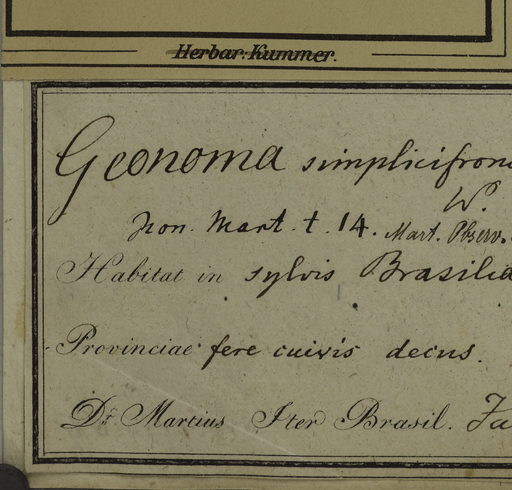 Herbar. Kummer.
Geonoma simplicifron
W.
non. Mart. t. 14. Mart. Observ.
Habitat in sylvis Brasilia
Provinciae fere cuivis decus.
Dr. Martius Iter Brasil. Ja